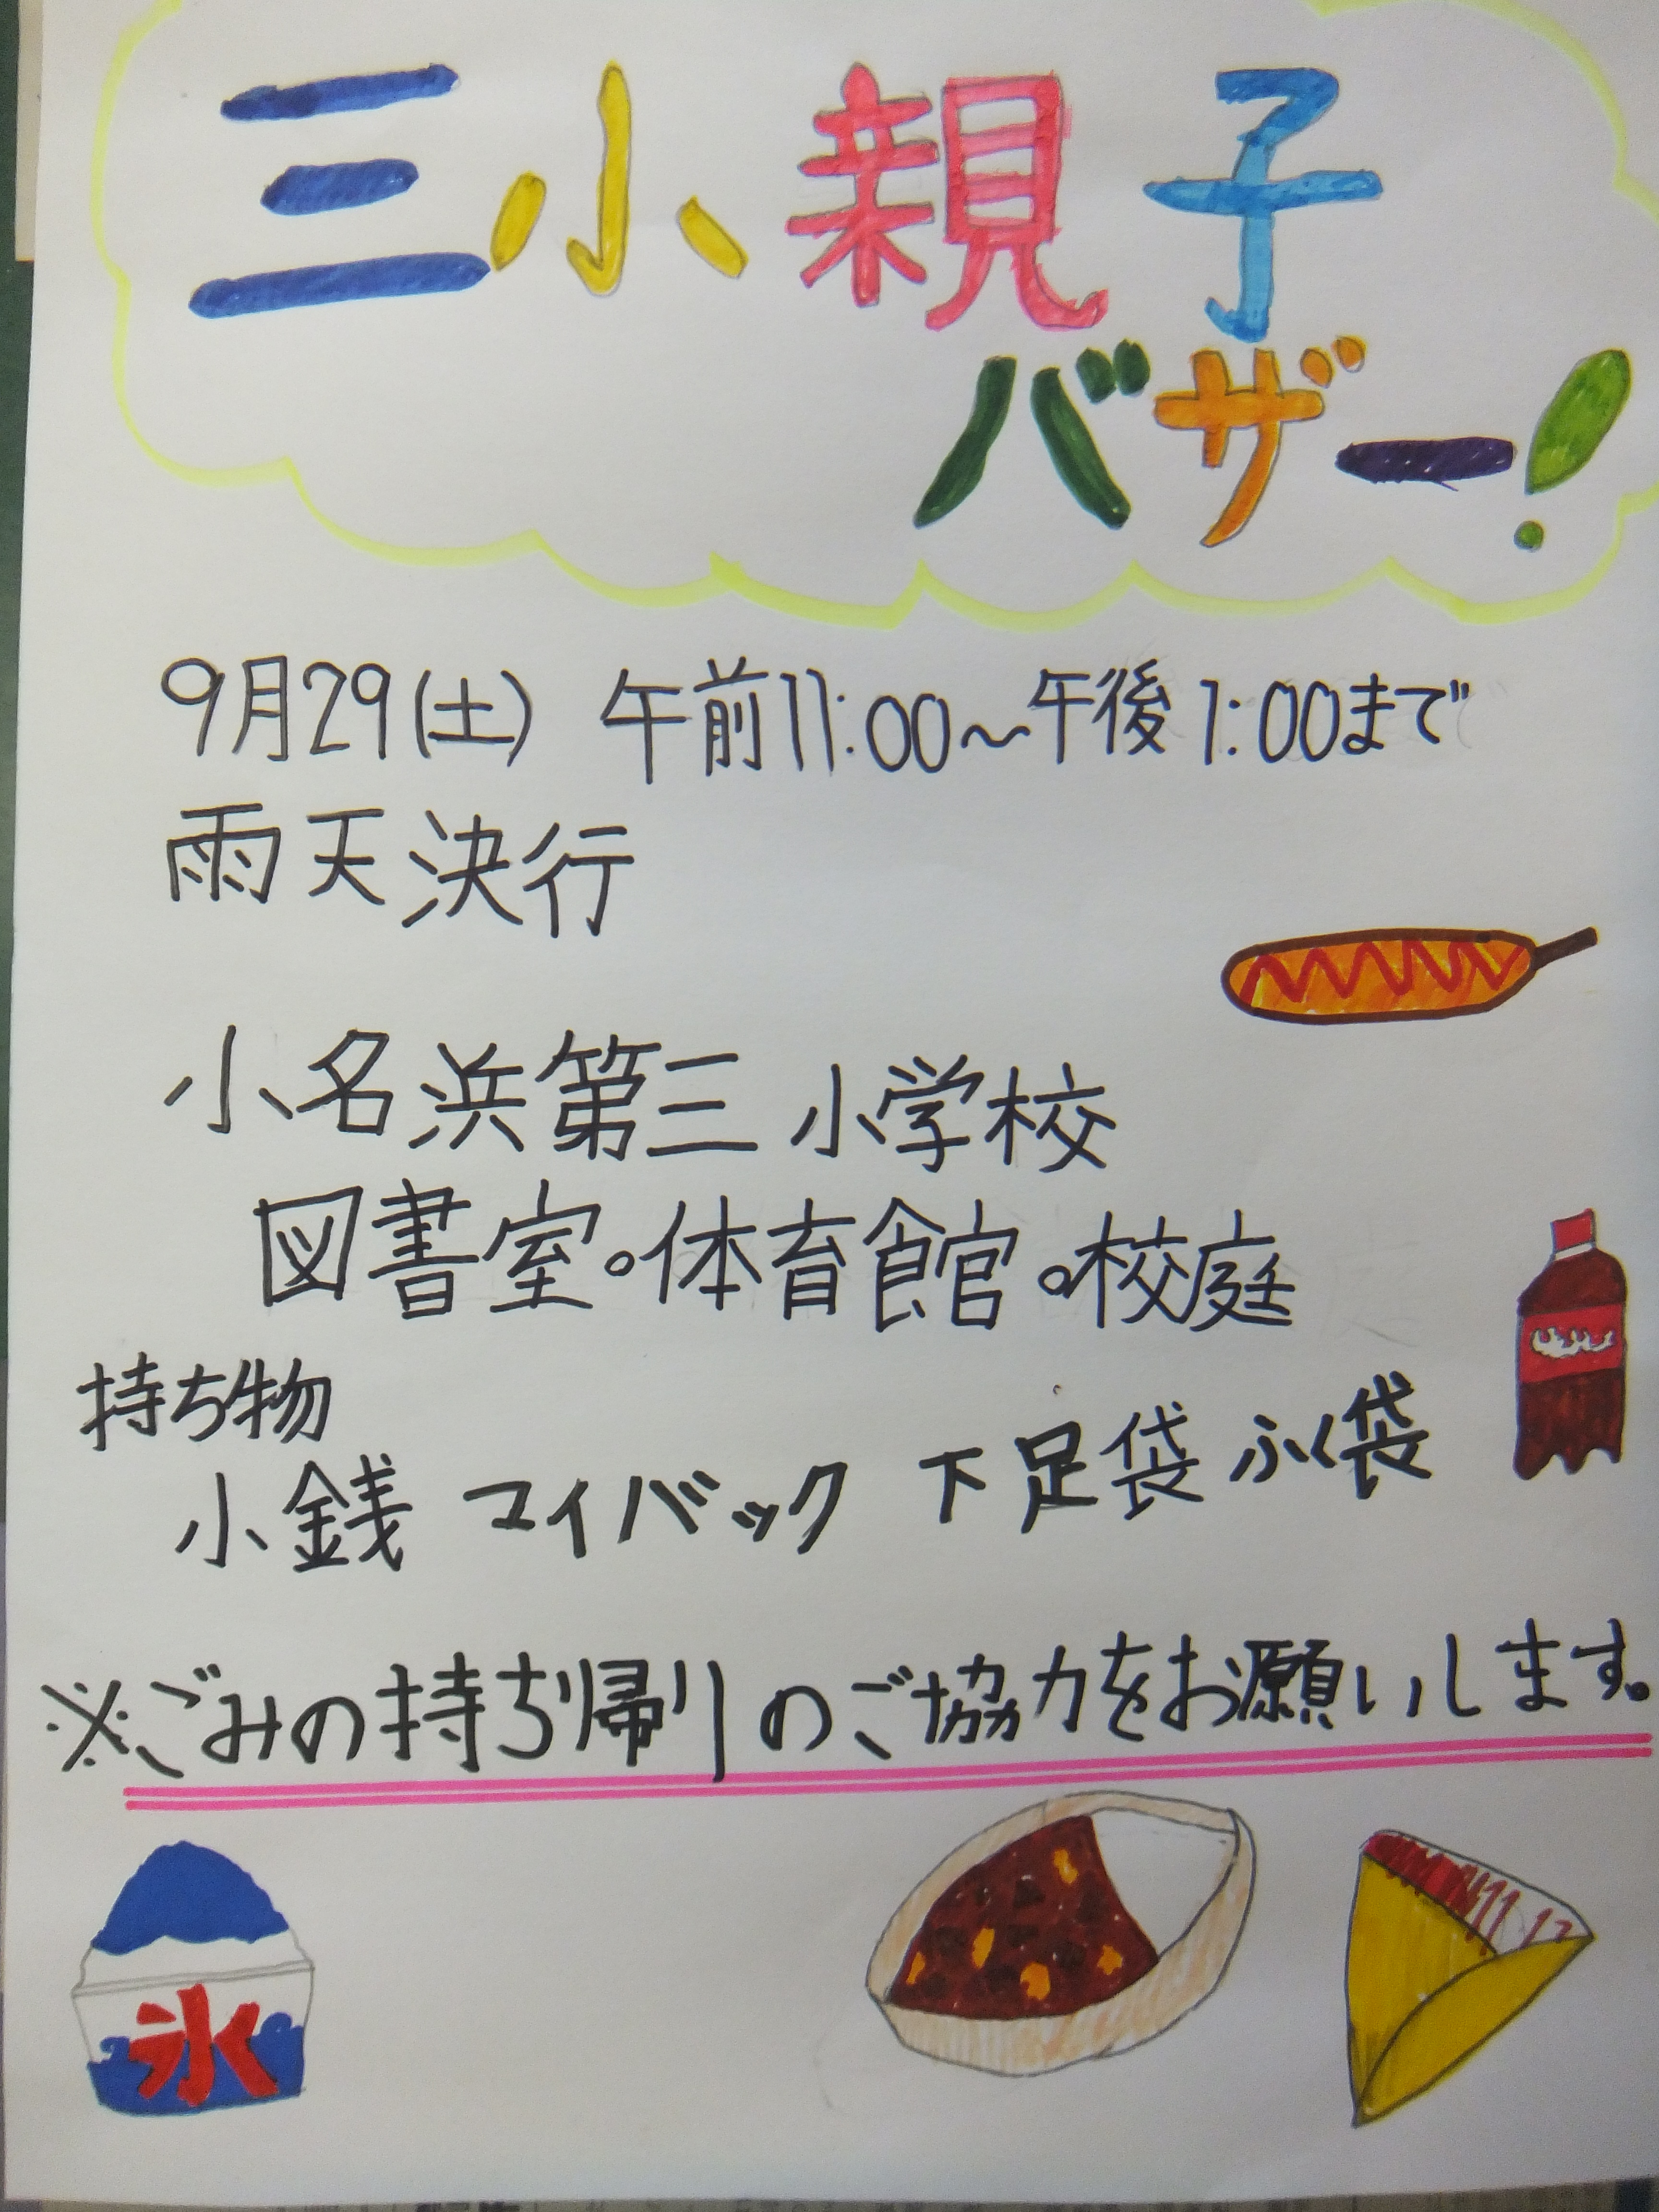 三小親子
バザー!
9月29(土) 午前11:00～午後1:00まで
雨天決行
小名浜第三小学校
図書室。体育館。校庭
持ち物
小銭 マイバック 下足袋 ふく袋
※ごみの持ち帰りのご協力をお願いします。
氷